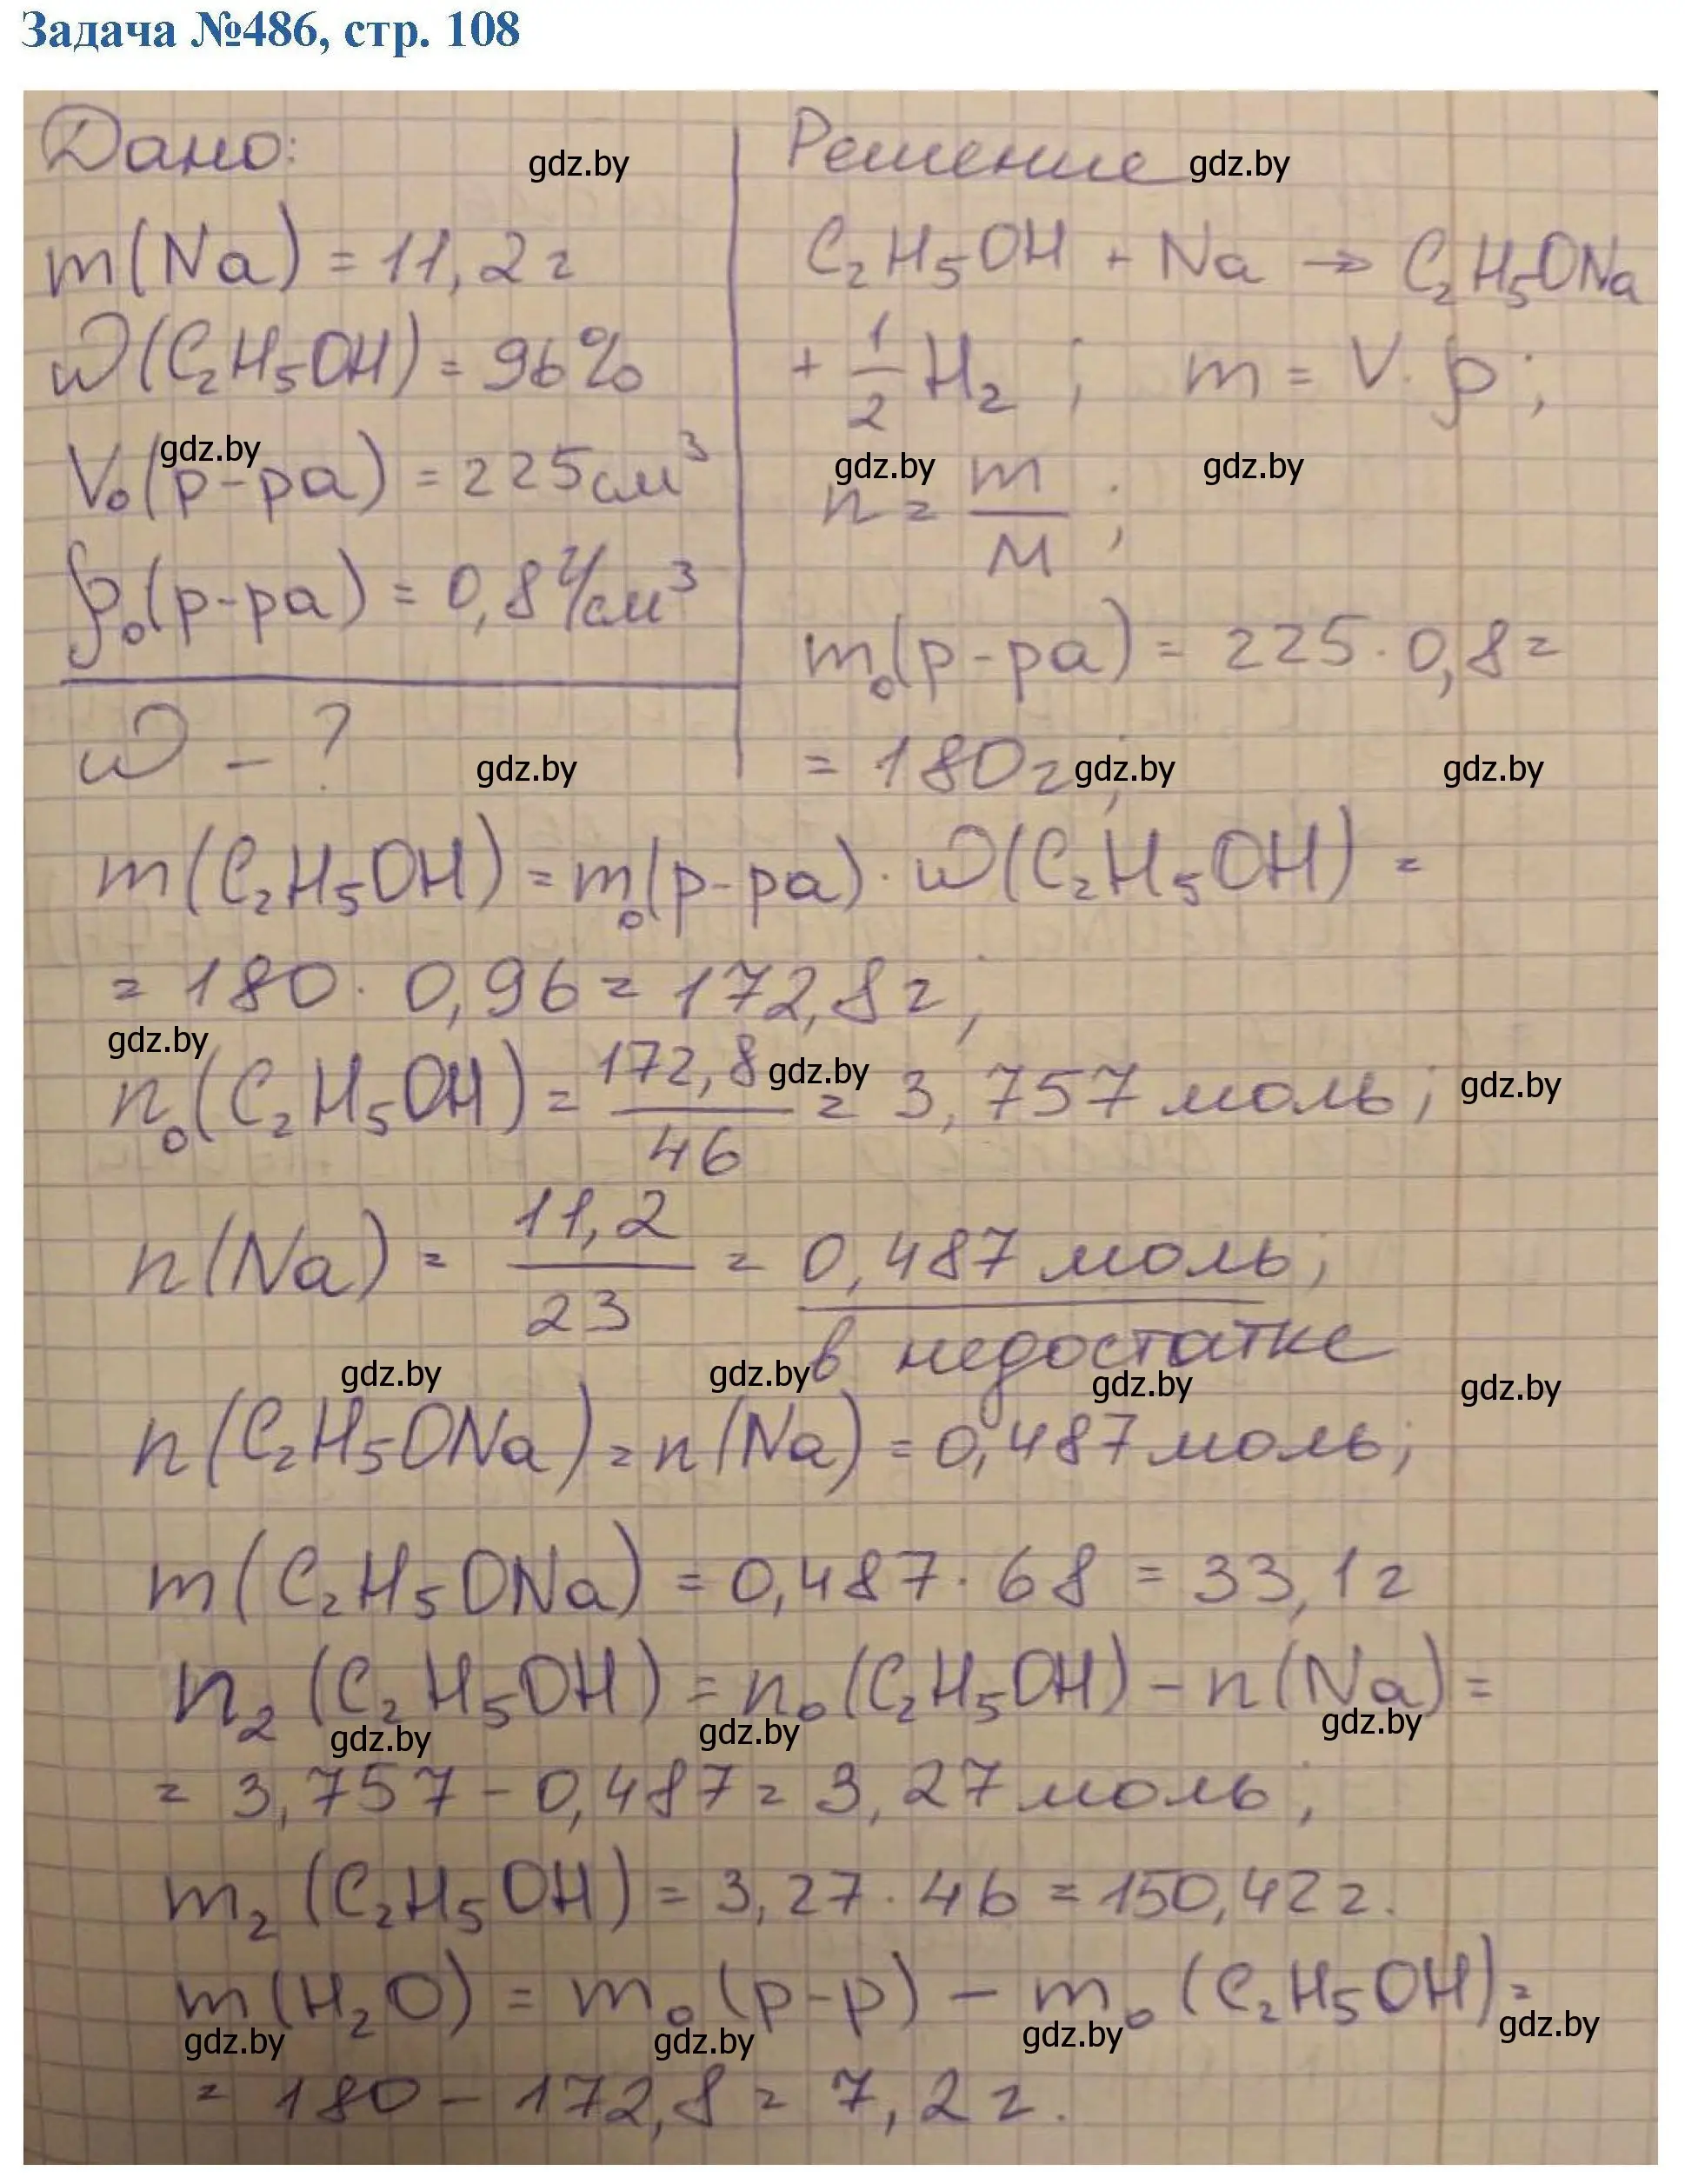 Задача №486, стр. 108
Дано:
gdz.by
m(Na) = 11,2г
ω(C₂H₅OH) = 96%
gdz.by
V₀(р-ра) = 225см³
ρ₀(р-ра) = 0,8 г/см³
ω - ?
gdz.by
Решение
gdz.by
C₂H₅OH + Na → C₂H₅ONa
+ 1/2 H₂ ; m = V · ρ ;
gdz.by gdz.by
n = m/M ;
m₀(р-ра) = 225 · 0,8 =
= 180г;
gdz.by gdz.by
m(C₂H₅OH) = m₀(р-ра) · ω(C₂H₅OH) =
= 180 · 0,96 = 172,8г;
gdz.by
n₀(C₂H₅OH) = 172,8/46 = 3,757 моль;
gdz.by gdz.by
n(Na) = 11,2/23 = 0,487 моль;
в недостатке
gdz.by gdz.by gdz.by gdz.by
n(C₂H₅ONa) = n(Na) = 0,487 моль;
m(C₂H₅ONa) = 0,487 · 68 = 33,1г
n₂(C₂H₅OH) = n₀(C₂H₅OH) - n(Na) =
gdz.by gdz.by gdz.by
= 3,757 - 0,487 = 3,27 моль;
m₂(C₂H₅OH) = 3,27 · 46 = 150,42 г.
m(H₂O) = m₀(р-р) - m₀(C₂H₅OH) =
gdz.by gdz.by gdz.by gdz.by
= 180 - 172,8 = 7,2 г.